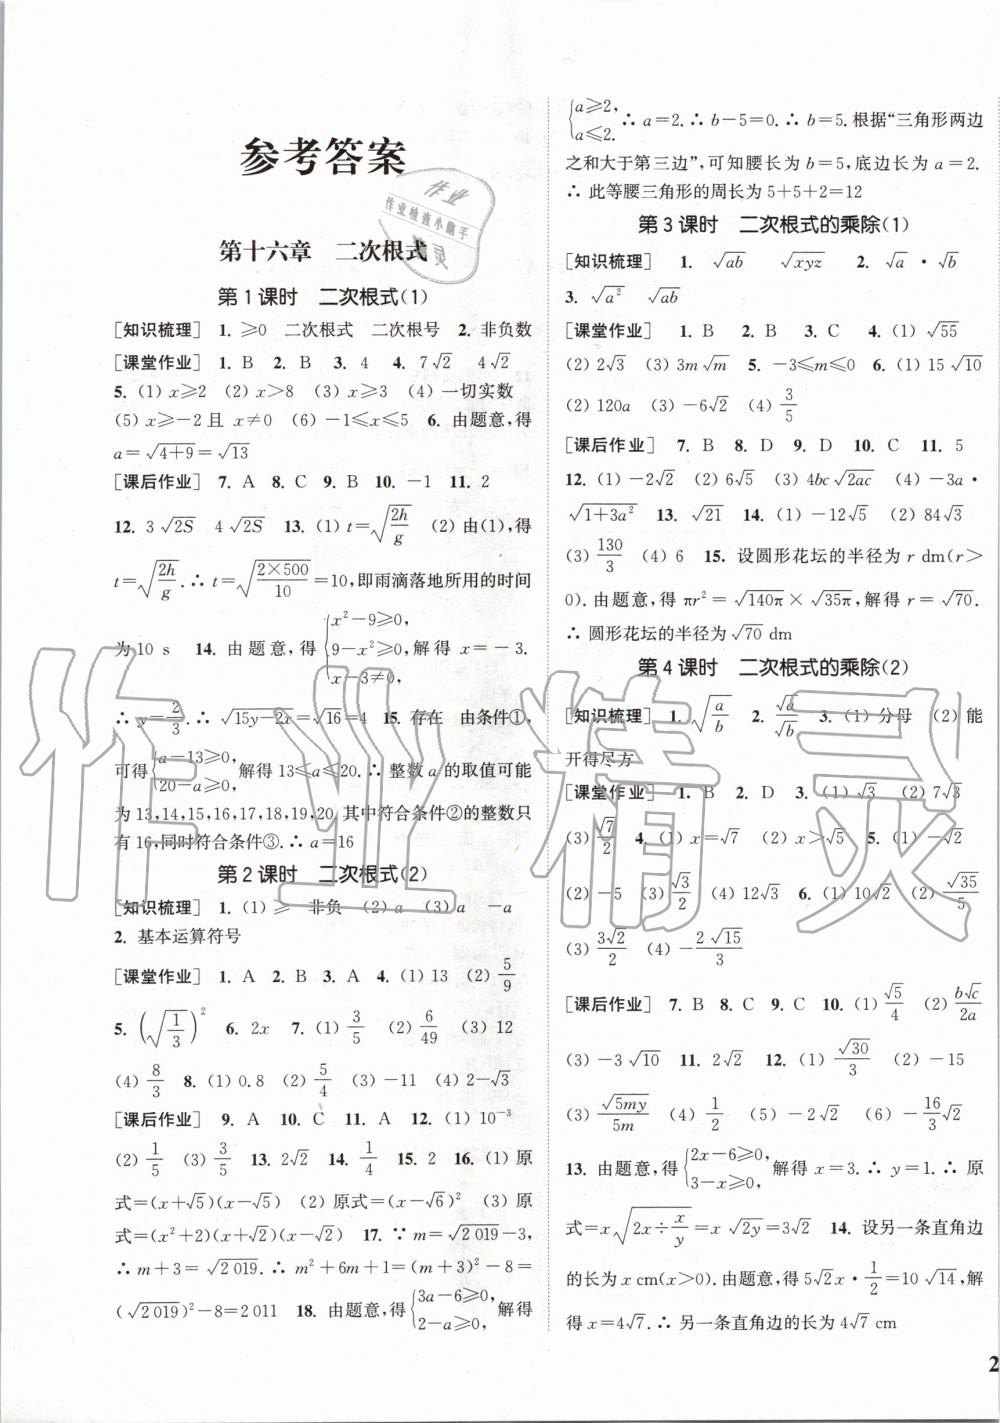 参考答案
第十六章 二次根式
第1课时 二次根式(1)
[知识梳理] 1. ≥0 二次根式 二次根号 2. 非负数
[课堂作业] 1. B 2. B 3. 4 4. 7√2 4√2
5. (1) x≥2 (2) x>8 (3) x≥3 (4) 一切实数
(5) x≥-2且 x≠0 (6) -1≤x≤5 6. 由题意,得
a=√(4+9)=√13
[课后作业] 7. A 8. C 9. B 10. -1 11. 2
12. 3√(2S) 4√(2S) 13. (1) t=√(2h/g) (2) 由(1),得
t=√(2h/g).∴ t=√(2×500/10)=10,即雨滴落地所用的时间
为10 s 14. 由题意,得{x²-9≥0, 9-x²≥0, x-3≠0, 解得 x=-3.
∴ y=2/3.∴ √(15y-2x)=√16=4 15. 存在 由条件①,
可得{a-13≥0, 20-a≥0, 解得13≤a≤20.∴ 整数a的取值可能
为13,14,15,16,17,18,19,20. 其中符合条件②的整数只
有16,同时符合条件③.∴ a=16
第2课时 二次根式(2)
[知识梳理] 1. (1) ≥ 非负 (2) a (3) a -a
2. 基本运算符号
[课堂作业] 1. A 2. B 3. A 4. (1) 13 (2) 5/9
5. (√(1/3))² 6. 2x 7. (1) 3/5 (2) 6/49 (3) 12
(4) 8/3 8. (1) 0.8 (2) 5/4 (3) -11 (4) 2-√3
[课后作业] 9. A 10. C 11. A 12. (1) 10⁻³
(2) 1/5 (3) 3/5 13. 2√2 14. 1/4 15. 2 16. (1) 原
式=(x+√5)(x-√5) (2) 原式=(x-√6)² (3) 原
式=(x²+2)(x+√2)(x-√2) 17. ∵ m=√2 019-3,
∴ m+3=√2 019.∴ m²+6m+1=(m+3)²-8=
(√2 019)²-8=2 011 18. 由题意,得{3a-6≥0, 2-a≥0, 解得
{a≥2, a≤2. ∴ a=2.∴ b-5=0.∴ b=5. 根据“三角形两边
之和大于第三边”,可知腰长为b=5,底边长为a=2.
∴ 此等腰三角形的周长为5+5+2=12
第3课时 二次根式的乘除(1)
[知识梳理] 1. √ab √xyz 2. √a·√b
3. √a² √ab
[课堂作业] 1. B 2. B 3. C 4. (1) √55
(2) 2√3 (3) 3m√m 5. -3≤m≤0 6. (1) 15√10
(2) 120a (3) -6√2 (4) 3/5
[课后作业] 7. B 8. D 9. D 10. C 11. 5
12. (1) -2√2 (2) 6√5 (3) 4bc√2ac (4) -3a·
√(1+3a²) 13. √21 14. (1) -12√5 (2) 84√3
(3) 130/3 (4) 6 15. 设圆形花坛的半径为r dm(r>
0). 由题意,得πr²=√140π×√35π,解得r=√70.
∴ 圆形花坛的半径为√70 dm
第4课时 二次根式的乘除(2)
[知识梳理] 1. √(a/b) 2. √a/√b 3. (1) 分母 (2) 能
开得尽方
[课堂作业] 1. B 2. D 3. (1) √3 (2) 7√3
(3) √7/2 4. (1) x=√7 (2) x>√5 5. (1) -√2
(2) -5 (3) √3/2 (4) 12√3 6. (1) 10√2 (2) √35/5
(3) 3√2/2 (4) -2√15/3
[课后作业] 7. B 8. C 9. C 10. (1) √5/4 (2) b√c/2a
(3) -3√10 11. 2√2 12. (1) √30/3 (2) -15
(3) √5my/5m (4) 1/2 (5) -2√2 (6) -16/3√2
13. 由题意,得{2x-6≥0, 3-x≥0, 解得x=3.∴ y=1.∴ 原
式=x√(2x÷x/y)=x√2y=3√2 14. 设另一条直角边
的长为x cm(x>0). 由题意,得5√2x·1/2=10√14,解
得x=4√7.∴ 另一条直角边的长为4√7 cm
2
作业
作业检查小助手
精灵
作业精灵